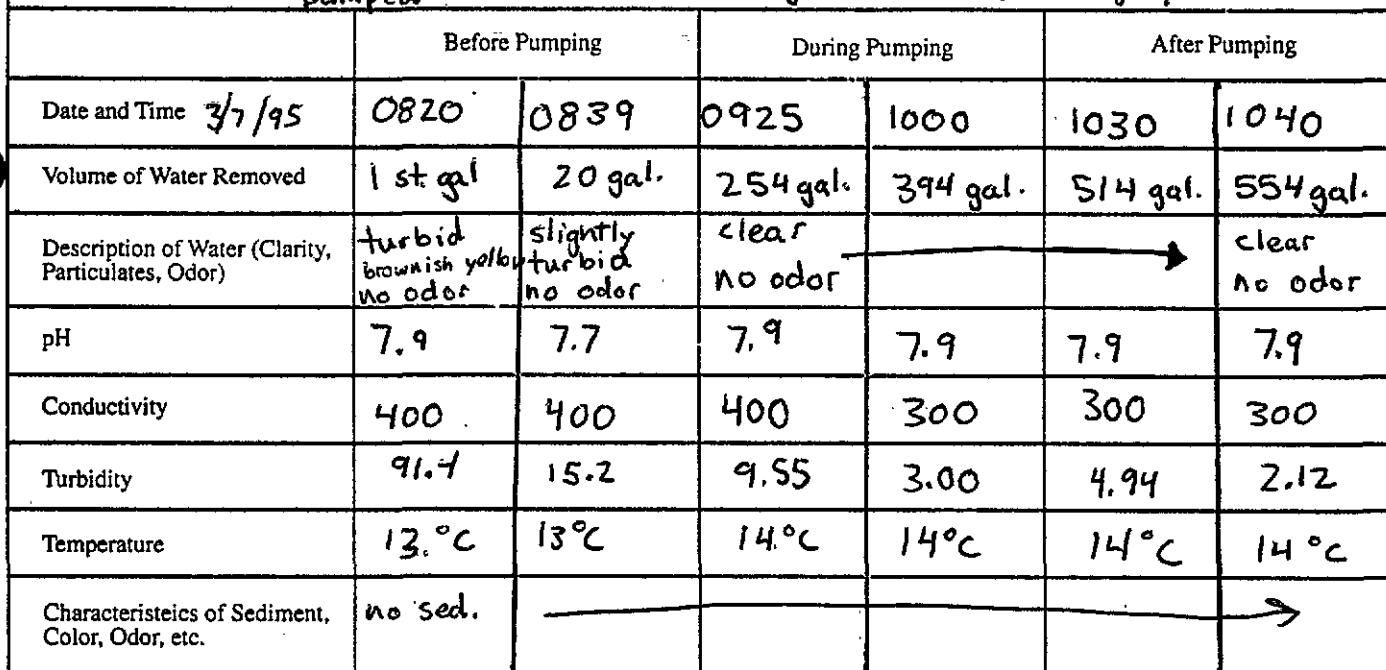 pumped
Before Pumping During Pumping After Pumping
Date and Time 3/7/95 0820 0839 0925 1000 1030 1040
Volume of Water Removed 1 st. gal 20 gal. 254 gal. 394 gal. 514 gal. 554 gal.
Description of Water (Clarity, Particulates, Odor) turbid brownish yellow no odor slightly turbid no odor clear no odor clear no odor
pH 7.9 7.7 7.9 7.9 7.9 7.9
Conductivity 400 400 400 300 300 300
Turbidity 15.2 9.55 3.00 4.94 2.12
Temperature 13.°C 13°C 14.°C 14°C 14°C 14°C
Characteristeics of Sediment, Color, Odor, etc. no sed.